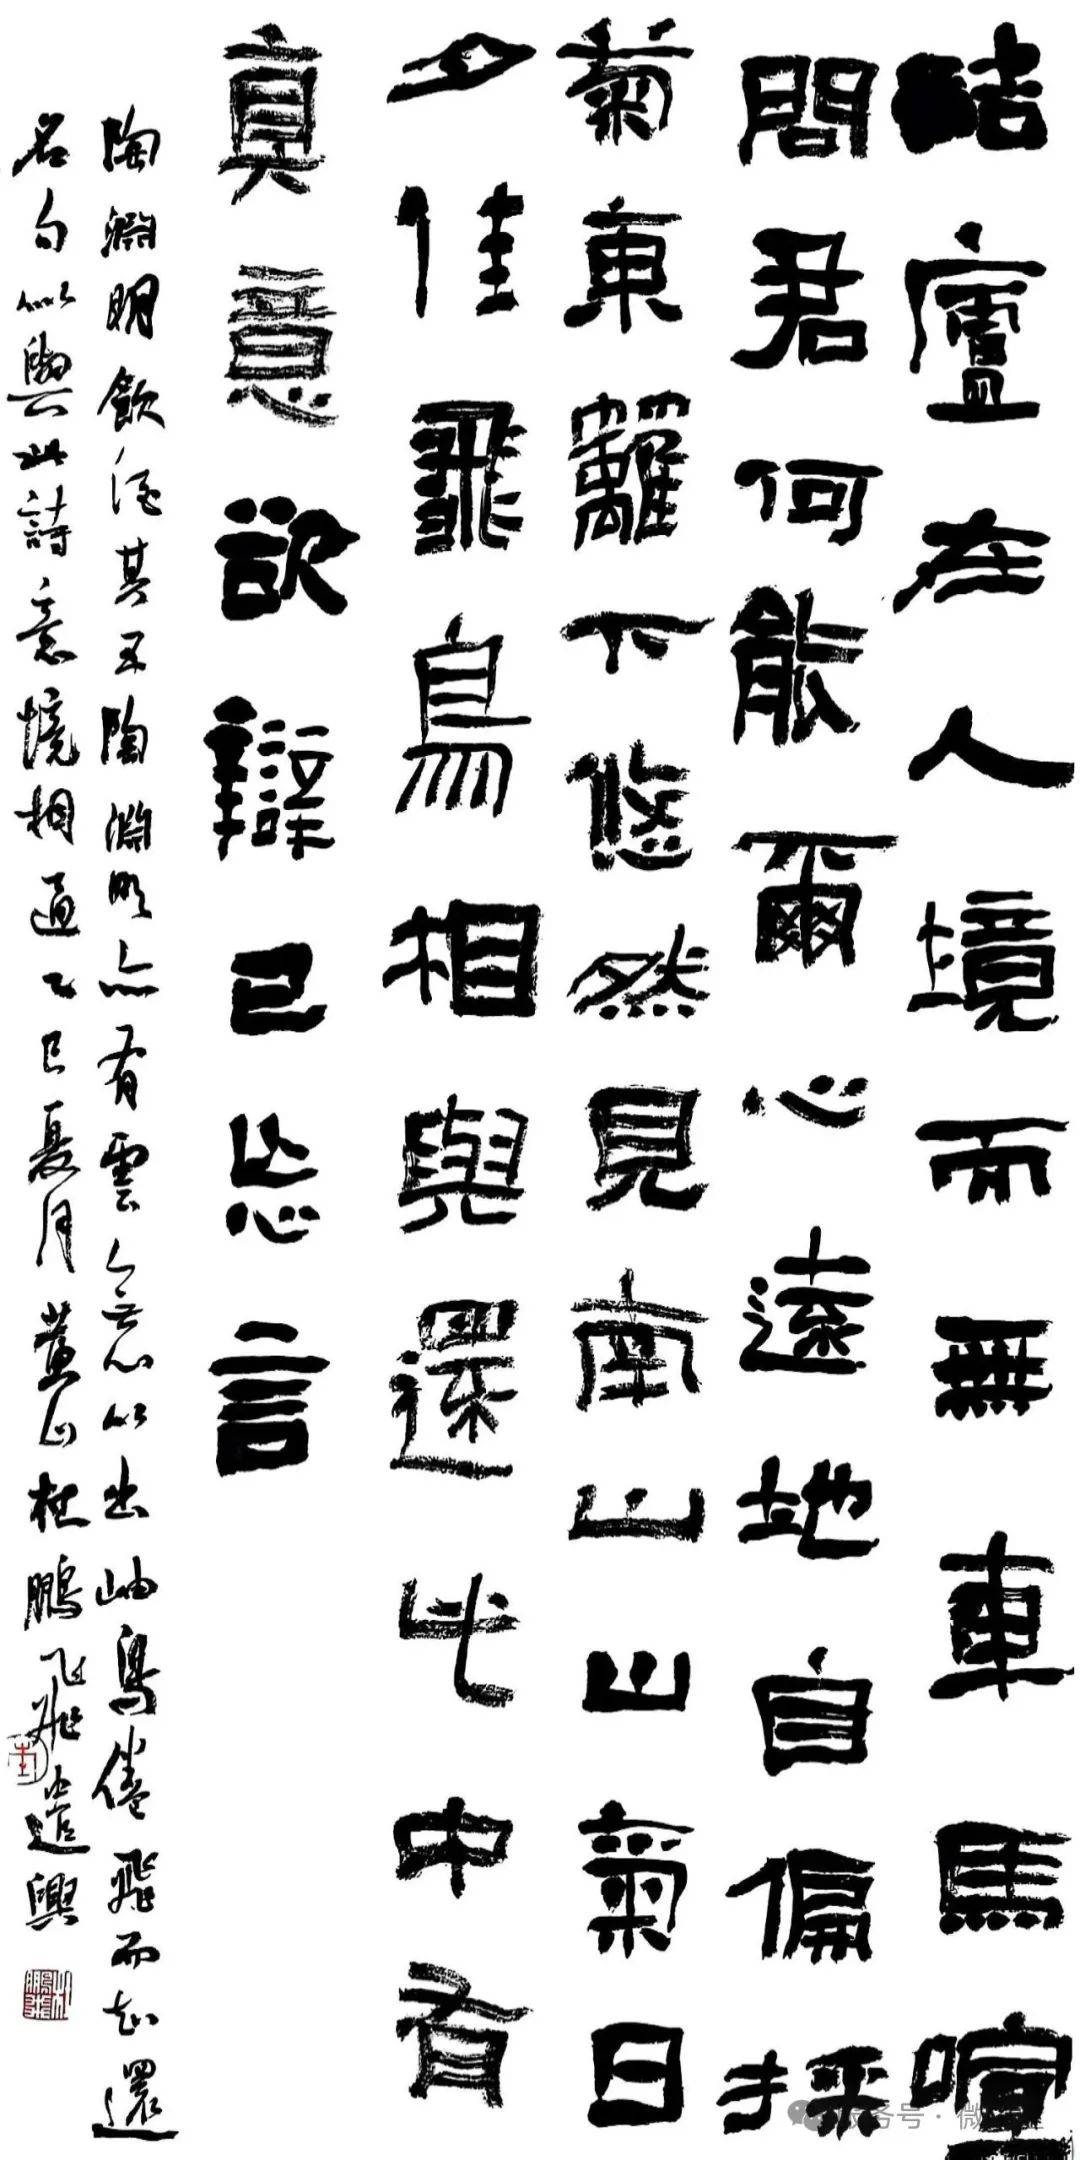 結廬在人境而無車馬喧
問君何能爾心遠地自偏採
菊東籬下悠然見南山山氣日
夕佳飛鳥相與還此中有
真意欲辯已忘言
陶淵明飲酒其五陶淵明亦有雲無心以出岫鳥倦飛而知還
名句似與此詩意境相通乙巳夏月黃山杜鵬飛遣興